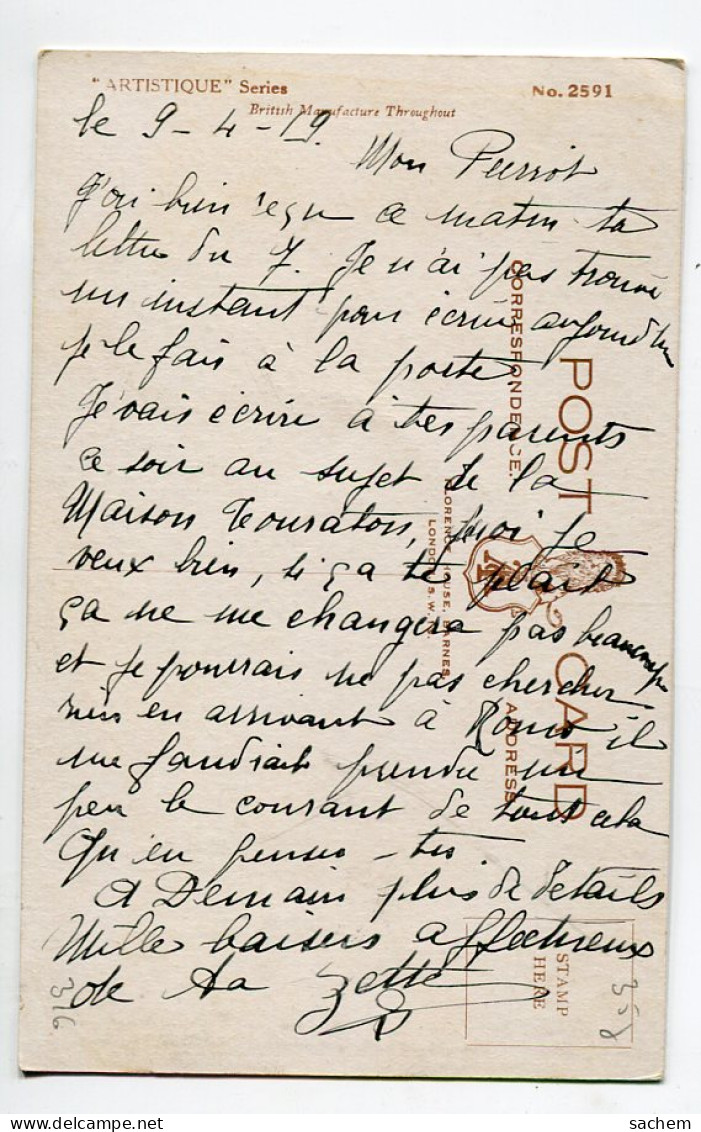 "ARTISTIQUE" Series
No. 2591
British Manufacture Throughout
le 9-4-19.
Mon Pierrot
J'ai bien reçu ce matin ta
lettre du 7. Je n'ai pas trouvé
un instant pour écrire aujourd'hui
je le fais à la poste
Je vais écrire à tes parents
ce soir au sujet de la
Maison Touraton, moi je
veux bien, si ça te plait
ça ne me changera pas beaucoup
et je pourrais ne pas chercher
rien en arrivant à il
me faudrait prendre un
peu le courant de tout cela
Qu'en penses-tu.
A Demain plus de détails
Mille baisers affectueux
de ta Zette
POST CARD
CORRESPONDENCE.
ADDRESS
FLORENCE HOUSE, BARNES,
LONDON, S.W.
STAMP
HERE
316
sachem